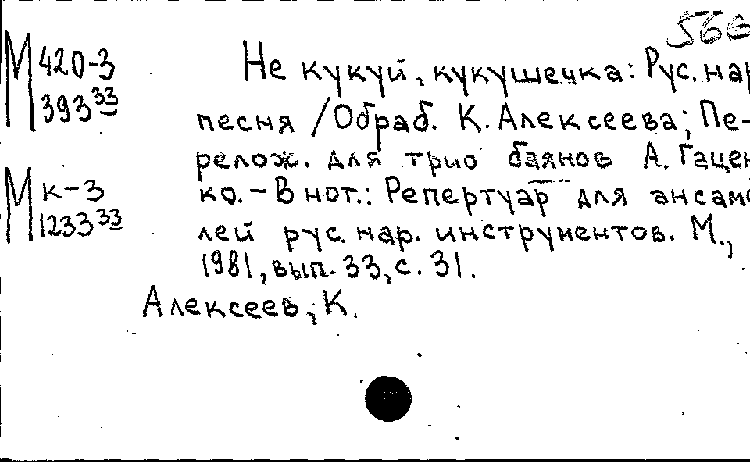 566
М 420-3
393 33
Не кукуй, кукушечка: Рус. нар
песня /Обраб. К. Алексеева; Пе-
релож. для трио баянов А. Гацен
ко. - В нот.: Репертуар для ансамб
М к-3
1233 33
лей рус. нар. инструментов. М.,
1981, вып. 33, с. 31.
Алексеев, К.